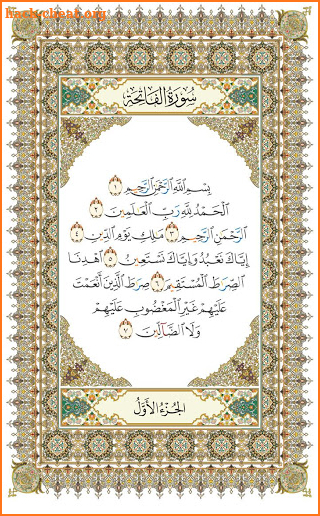 hack-cheat.org
سُورَةُ الْفَاتِحَةِ
بِسْمِ اللَّهِ الرَّحْمَٰنِ الرَّحِيمِ ١
الْحَمْدُ لِلَّهِ رَبِّ الْعَٰلَمِينَ ٢
الرَّحْمَٰنِ الرَّحِيمِ ٣ مَٰلِكِ يَوْمِ الدِّينِ ٤
إِيَّاكَ نَعْبُدُ وَإِيَّاكَ نَسْتَعِينُ ٥ اهْدِنَا
الصِّرَٰطَ الْمُسْتَقِيمَ ٦ صِرَٰطَ الَّذِينَ أَنْعَمْتَ
عَلَيْهِمْ غَيْرِ الْمَغْضُوبِ عَلَيْهِمْ
وَلَا الضَّالِّينَ ٧
الجُزْءُ الأَوَّلُ